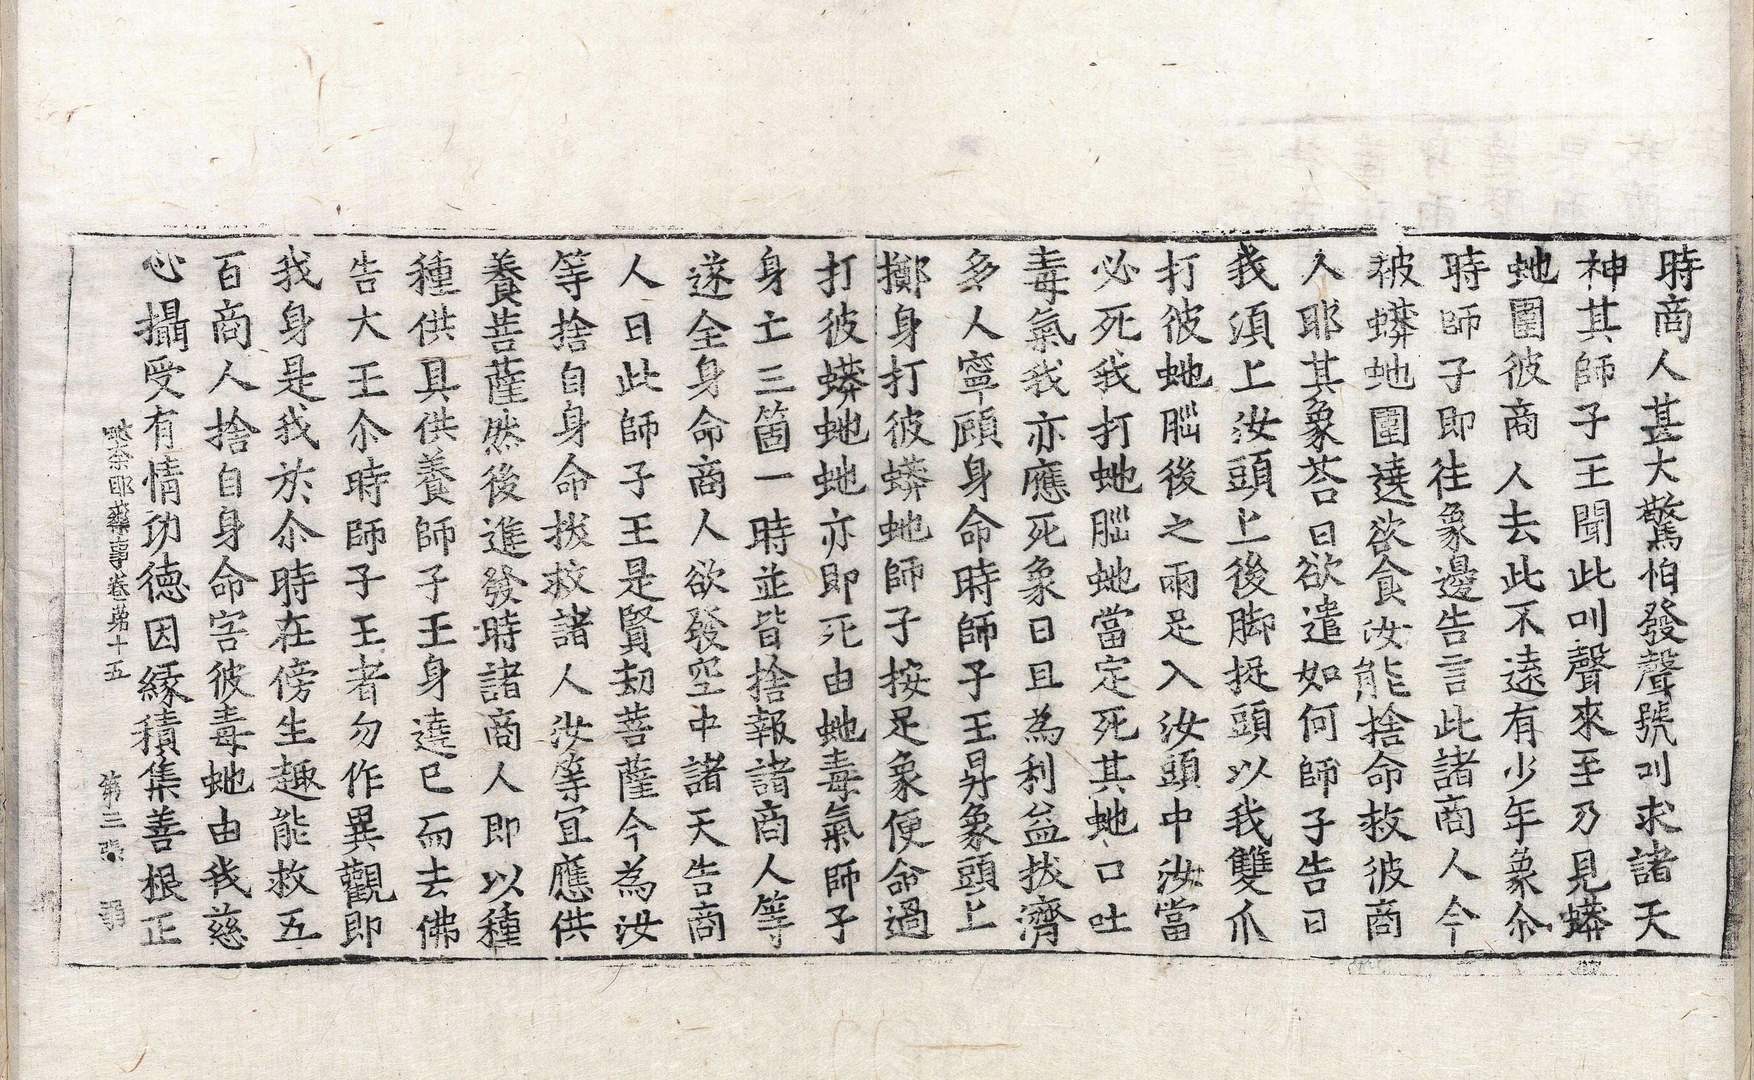 時商人甚大驚怕發聲號叫求諸天
神其師子王聞此叫聲來至乃見蟒
虵圍彼商人去此不遠有少年象尒
時師子即往象邊告言此諸商人今
被蟒虵圍遶欲食汝能捨命救彼商
人耶其象荅曰欲遣如何師子告曰
我湏上汝頭上後脚捉頭以我雙爪
打彼虵腦後之兩足入汝頭中汝當
必死我打虵腦虵當定死其虵口吐
毒氣我亦應死象曰且為利益拔濟
多人寧顧身命時師子王昇象頭上
擲身打彼蟒虵師子按足象便命過
打彼蟒虵虵亦即死由虵毒氣師子
身亡三箇一時並皆捨報諸商人等
遂全身命商人欲發空中諸天告商
人曰此師子王是賢劫菩薩今為汝
等捨自身命拔救諸人汝等宜應供
養菩薩然後進發時諸商人即以種
種供具供養師子王身遶已而去佛
告大王尒時師子王者勿作異觀即
我身是我於尒時在傍生趣能救五
百商人捨自身命害彼毒虵由我慈
心攝受有情功德因緣積集善根正
耶藥事卷第十五　第三張